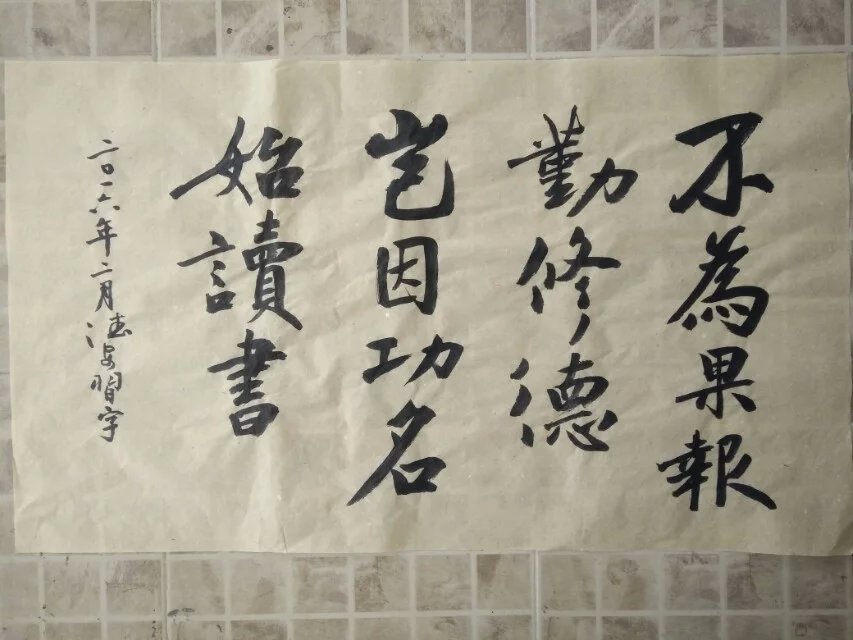 不為果報
勤修德
岂因功名
始讀書
二〇一六年二月
習字